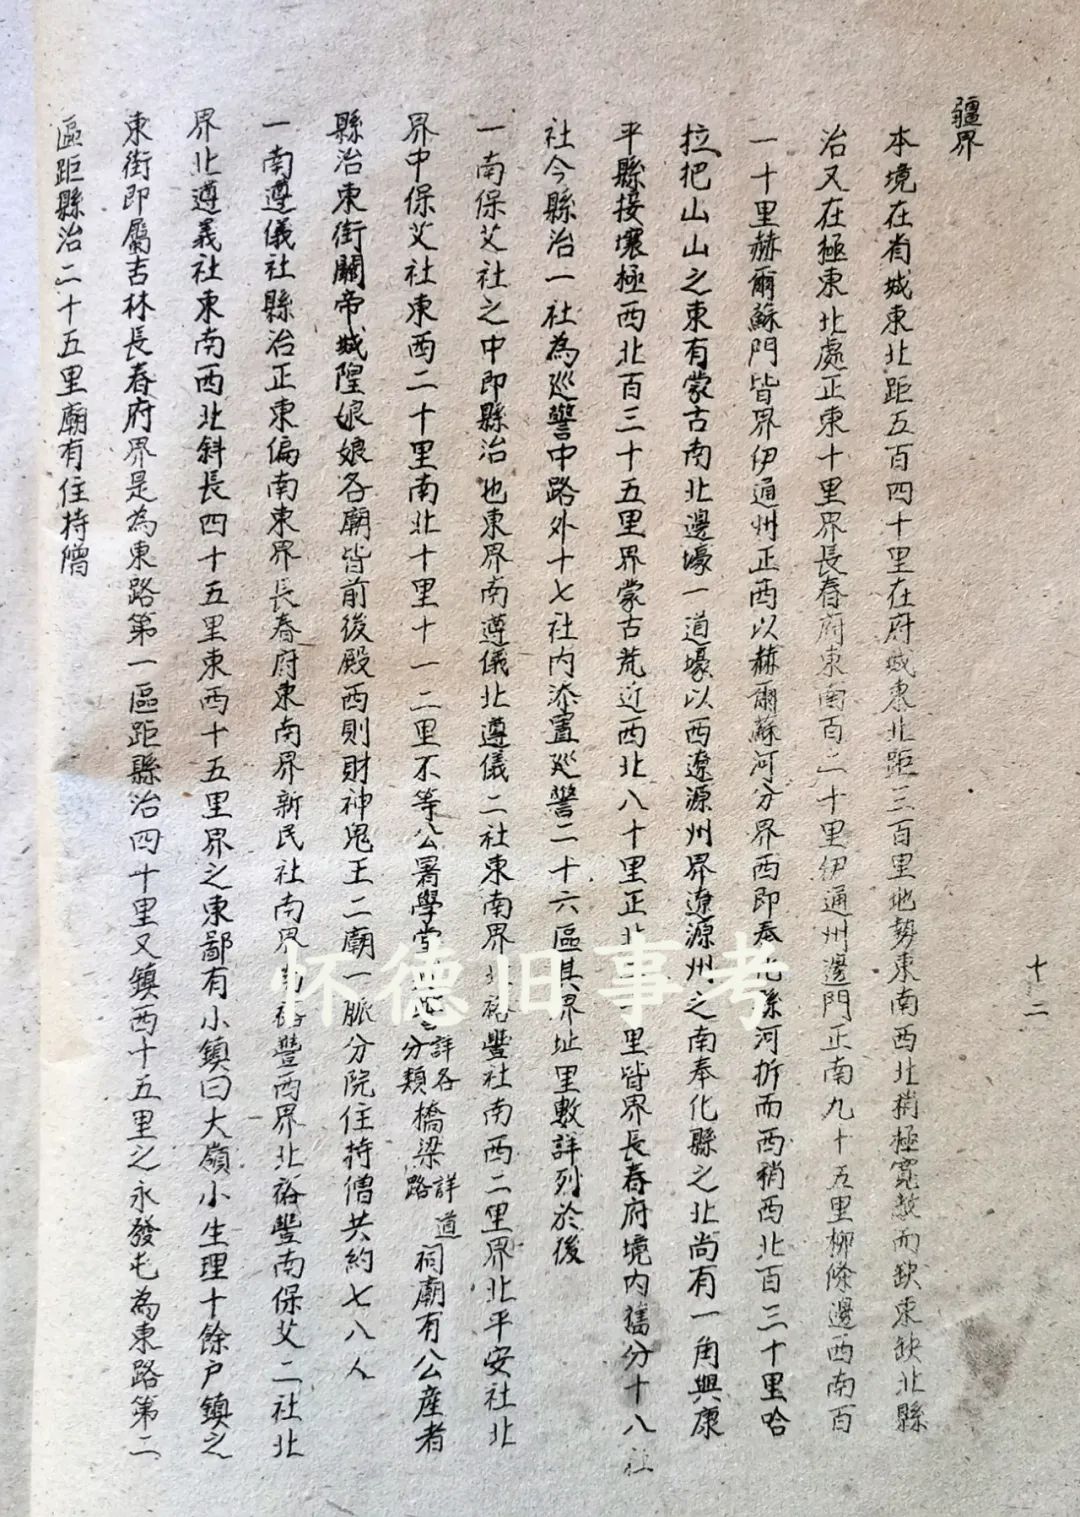 十二
疆界
本境在省城東北距五百四十里在府城東北距三百里地勢東南西北稍極寬敖而缺東缺北縣
治又在極東北處正東十里界長春府東南百二十里伊通州邊門正南九十五里柳條邊西南百
一十里赫爾蘇門皆界伊通州正西以赫爾蘇河分界西即奉化縣河折而西稍西北百三十里哈
拉把山山之東有蒙古南北邊壕一道壕以西遼源州界遼源州之南奉化縣之北尚有一角與康
平縣接壤極西北百三十五里界蒙古荒近西北八十里正北里皆界長春府境內舊分十八社
社今縣治一社為巡警中路外十七社內添置巡警二十六區其界址里數詳列於後
一南保艾社之中即縣治也東界南遵儀北遵儀二社東南界北裕豐社南西二里界北平安社北
界中保艾社東西二十里南北十里十一二里不等公署學堂詳各分類橋梁詳道路祠廟有公產者
縣治東街關帝城隍娘娘各廟皆前後殿西則財神鬼王二廟一脈分院住持僧共約七八人
一南遵儀社縣治正東偏南東界長春府東南界新民社南界南裕豐西界北裕豐南保艾二社北
界北遵義社東南西北斜長四十五里東西十五里界之東鄙有小鎮曰大嶺小生理十餘户鎮之
東街即屬吉林長春府界是為東路第一區距縣治四十里又鎮西十五里之永發屯為東路第二
區距縣治二十五里廟有住持僧
怀德旧事考